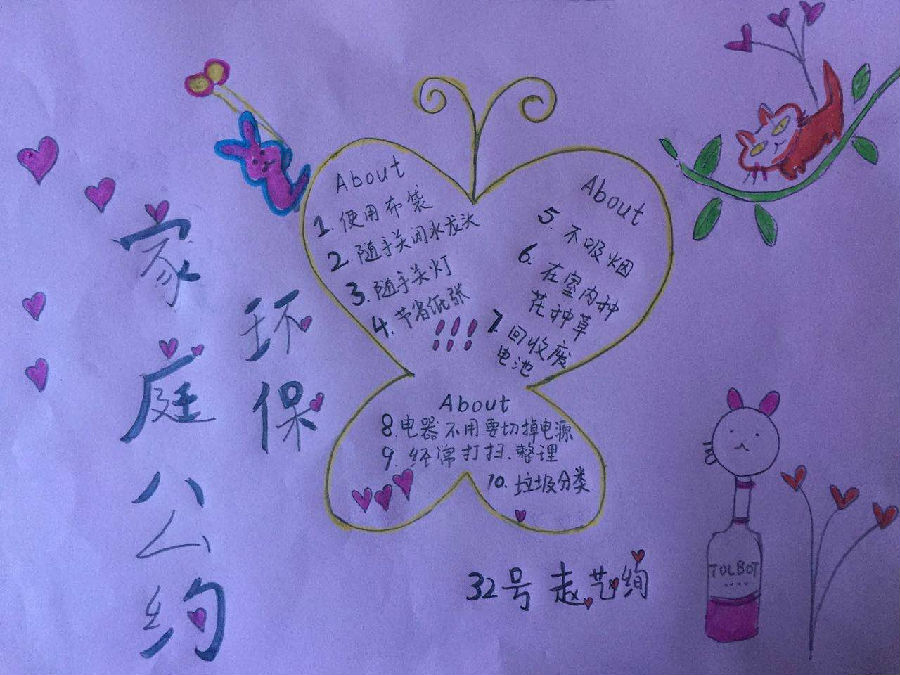 家庭公约
环保
About
1. 使用布袋
2. 随手关闭水龙头
3. 随手关灯
4. 节省纸张
!!!
About
5. 不吸烟
6. 在室内种
花种草
7 回收废
电池
About
8. 电器不用要切掉电源
9. 经常打扫.整理
10. 垃圾分类
32号 赵艺绚
TOLBOT